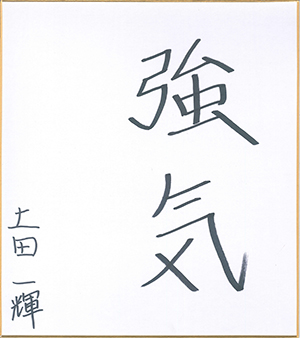 強気
土田一輝